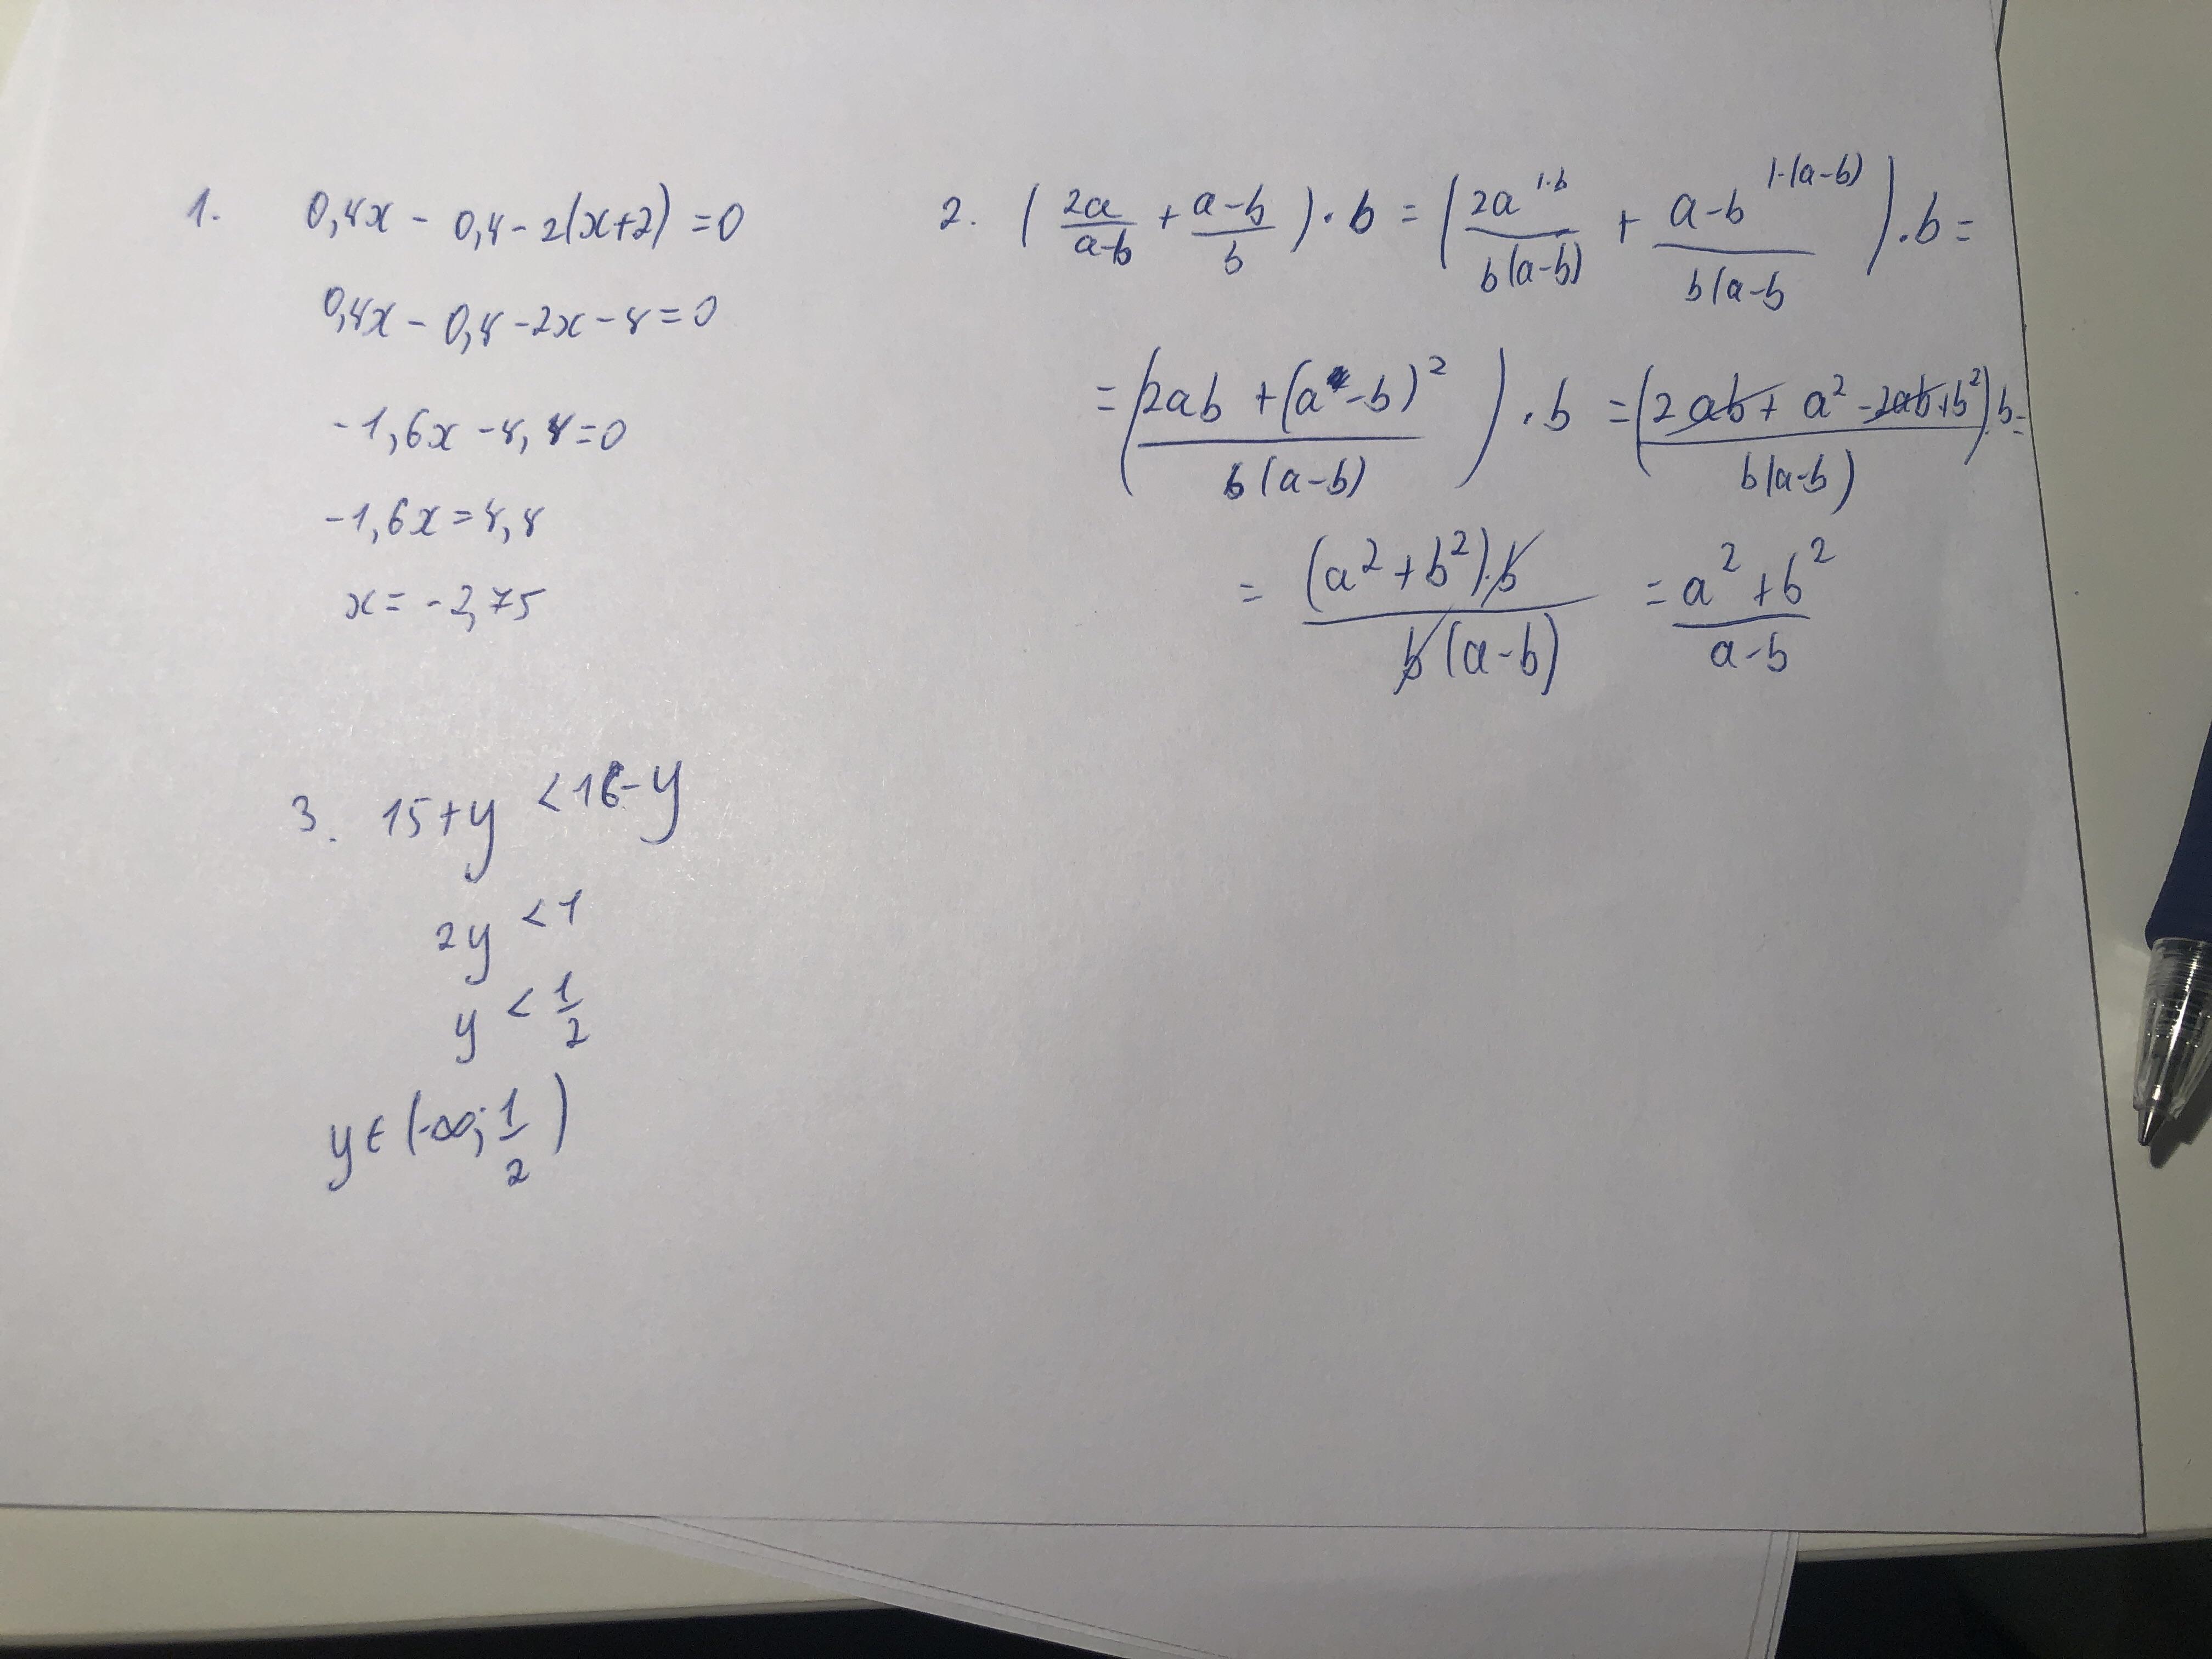 1. 0,4x - 0,4 - 2(x+2) = 0
0,4x - 0,4 - 2x - 4 = 0
-1,6x - 4,4 = 0
-1,6x = 4,4
x = -2,75
2. (2a/(a-b) + (a-b)/b) · b = (2a^(1·b)/(b(a-b)) + a-b^(1·(a-b))/(b(a-b) ) · b =
= (2ab + (a-b)²/(b(a-b)) ) · b = (2ab + a² - 2ab + b²)/(b(a-b)) · b =
= (a² + b²) · b/(b(a-b)) = (a² + b²)/(a-b)
3. 15 + y < 16 - y
2y < 1
y < 1/2
y ∈ (-∞; 1/2)